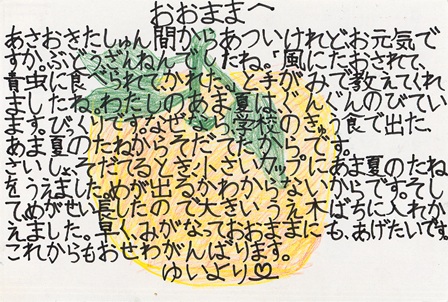 おおままへ
あさおきたしゅん間からあついけれど、お元気で
すか。ぶどうざんねんでしたね。「風にたおされて、
青虫に食べられて、かれた」と手がみで教えてくれ
ましたね。わたしのあま夏はぐんぐんのびてい
ます。びっくりです。なぜって、学校のきゅう食で出た、
あま夏のたねからそだったからです。
さいしょそだてるとき、小さいカップにあま夏のたね
をうえました。めが出るかわからないからです。そし
て、めがせい長したので大きいうえ木ばちに入れか
えました。早く、みがなっておおままにも、あげたいです。
これからもおせわがんばります。
ゆいより♡